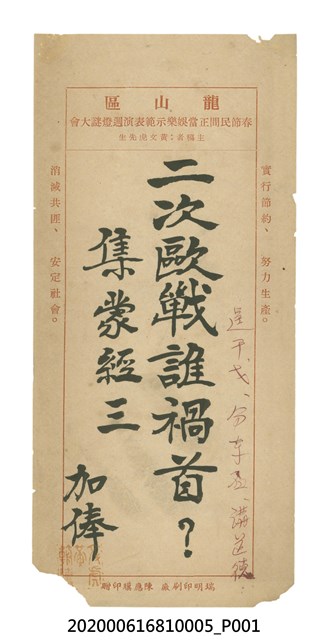 龍山區
春節民間正當娛樂示範表演週燈謎大會
主稿者：黃文虎先生
實行節約、努力生產。
二次歐戰誰禍首？
集蒙經三
加俸
消滅共匪、安定社會。
瑞明印刷廠 陳應璸印贈
202000616810005_P001